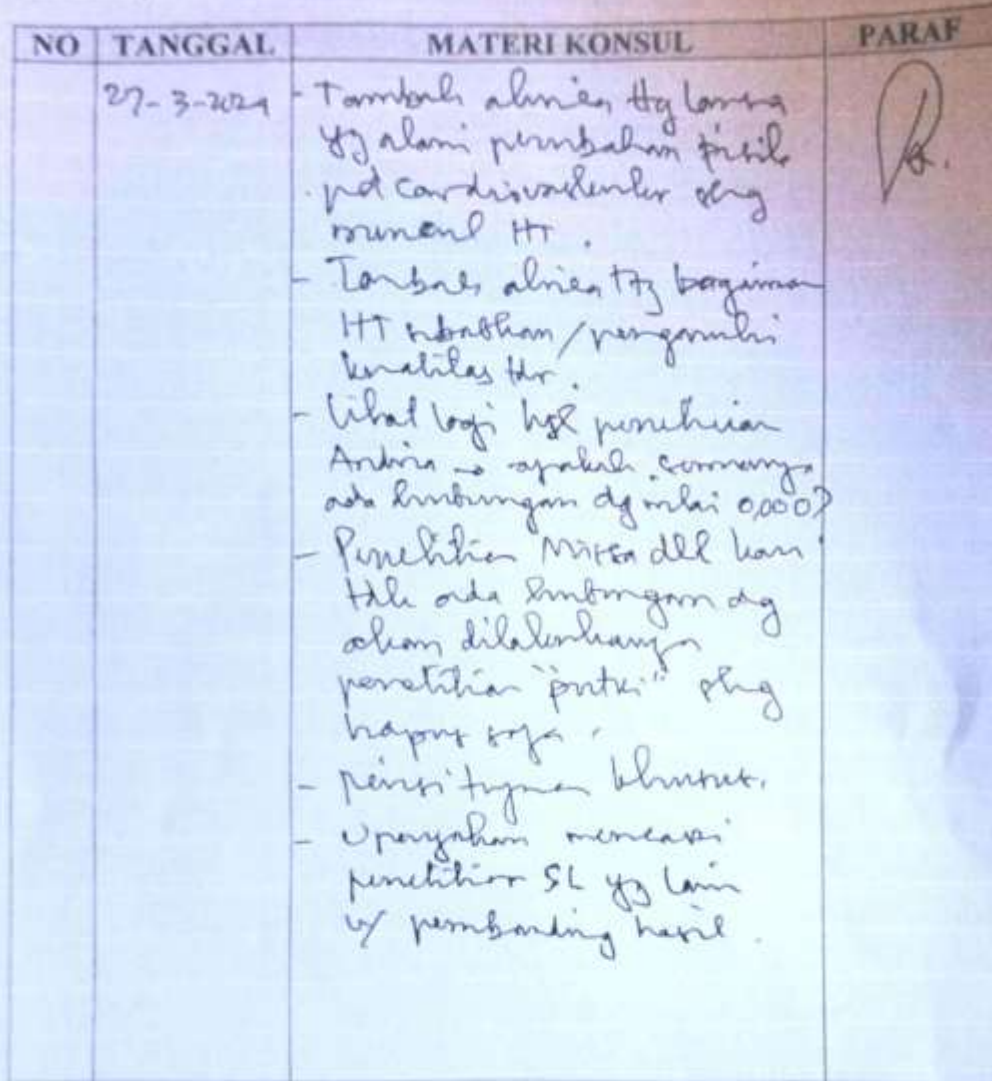 NO TANGGAL MATERI KONSUL PARAF
27-3-2024 - Tambah alinea ttg lansia
yg alami perubahan fisik
pd cardiovaskuler shg
muncul HT.
- Tambah alinea ttg bagaimana
HT sebabkan/pengaruhi
kualitas tdr.
- Lihat lagi hsl penelitian
→ apakah semuanya
ada hubungan dg nilai 0,000?
- Penelitian dkk
tdk ada hubungan dg
akan dilakukannya
penelitian shg
hapus saja.
- revisi tujuan khusus.
- Upayakan mencari
penelitian yg lain
u/ pembanding hasil.